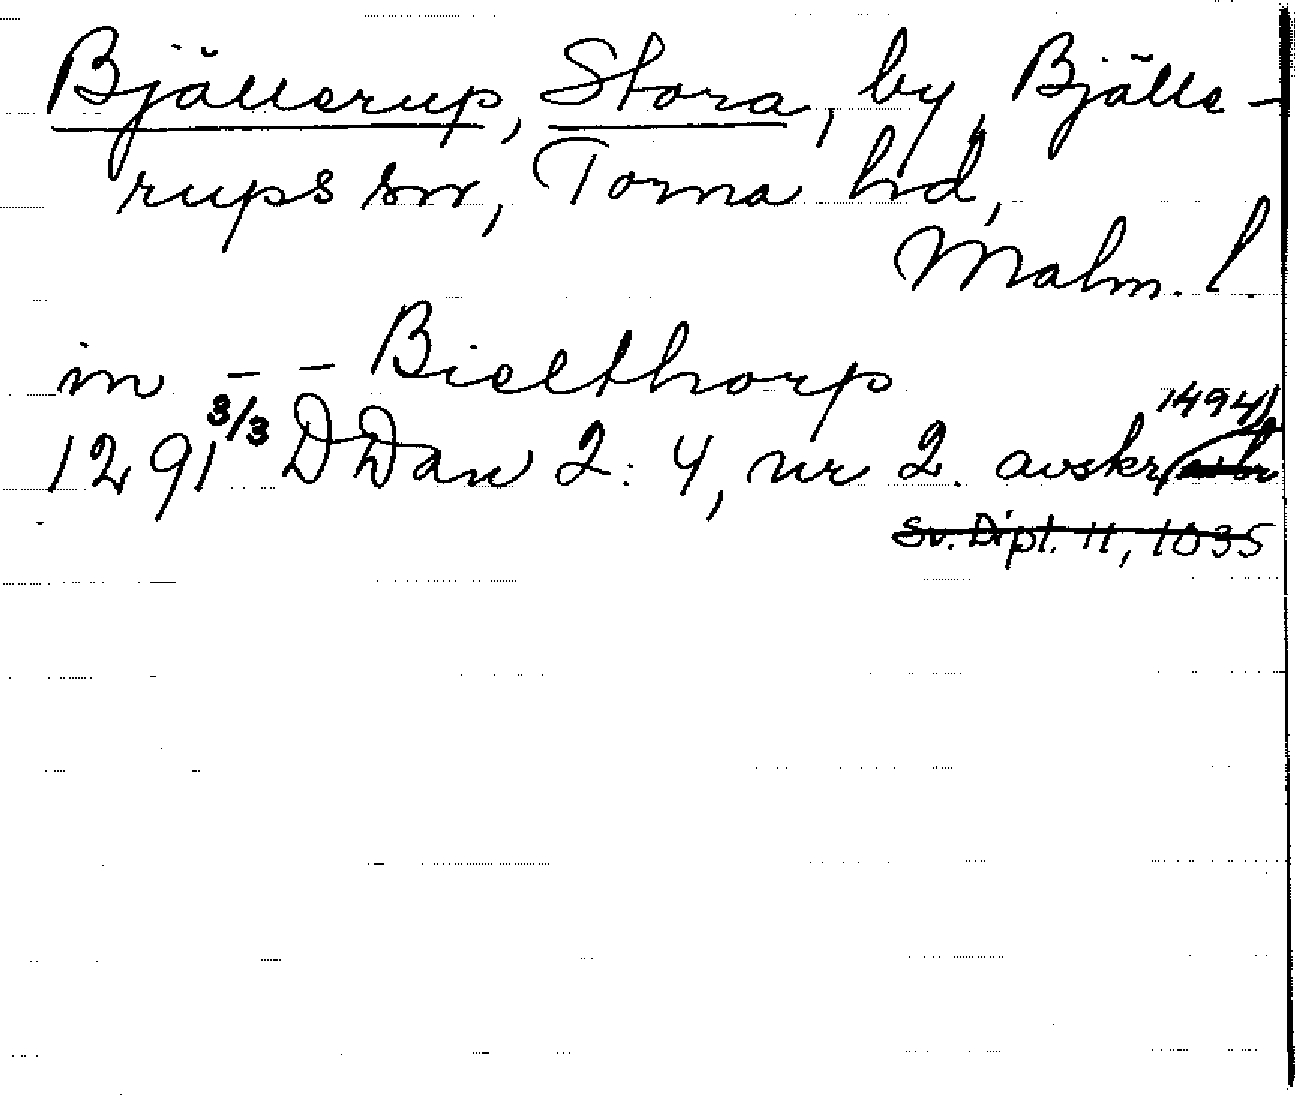 Bjällerup, Stora, by, Bjälle-
rups sn, Torna hd,
Malm. l.
in - - Bielthorp
1291 3/3 DDan 2:4, nr 2. avskr 1494
Sv. Dipl. 11, 1035